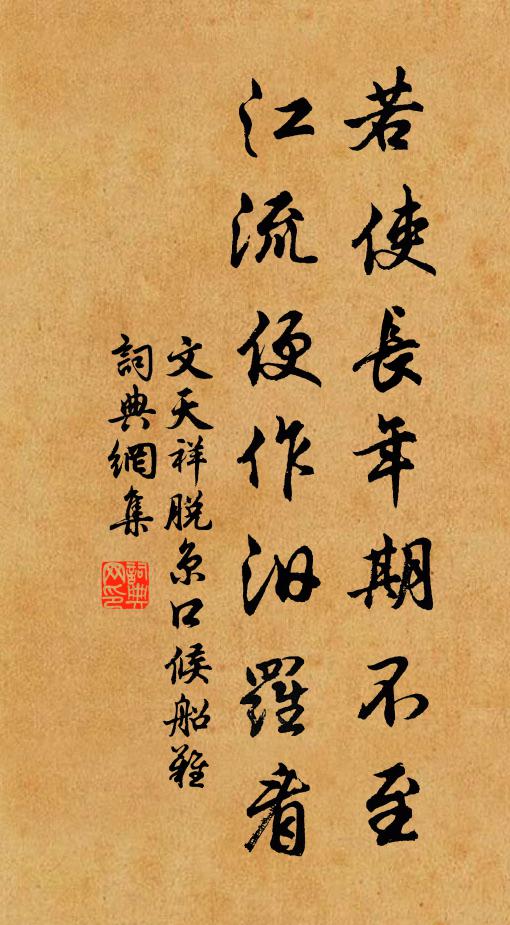 若使長年期不至
江流便作汨羅看
文天祥脫京口候船難
詞典網集
詞典
网印